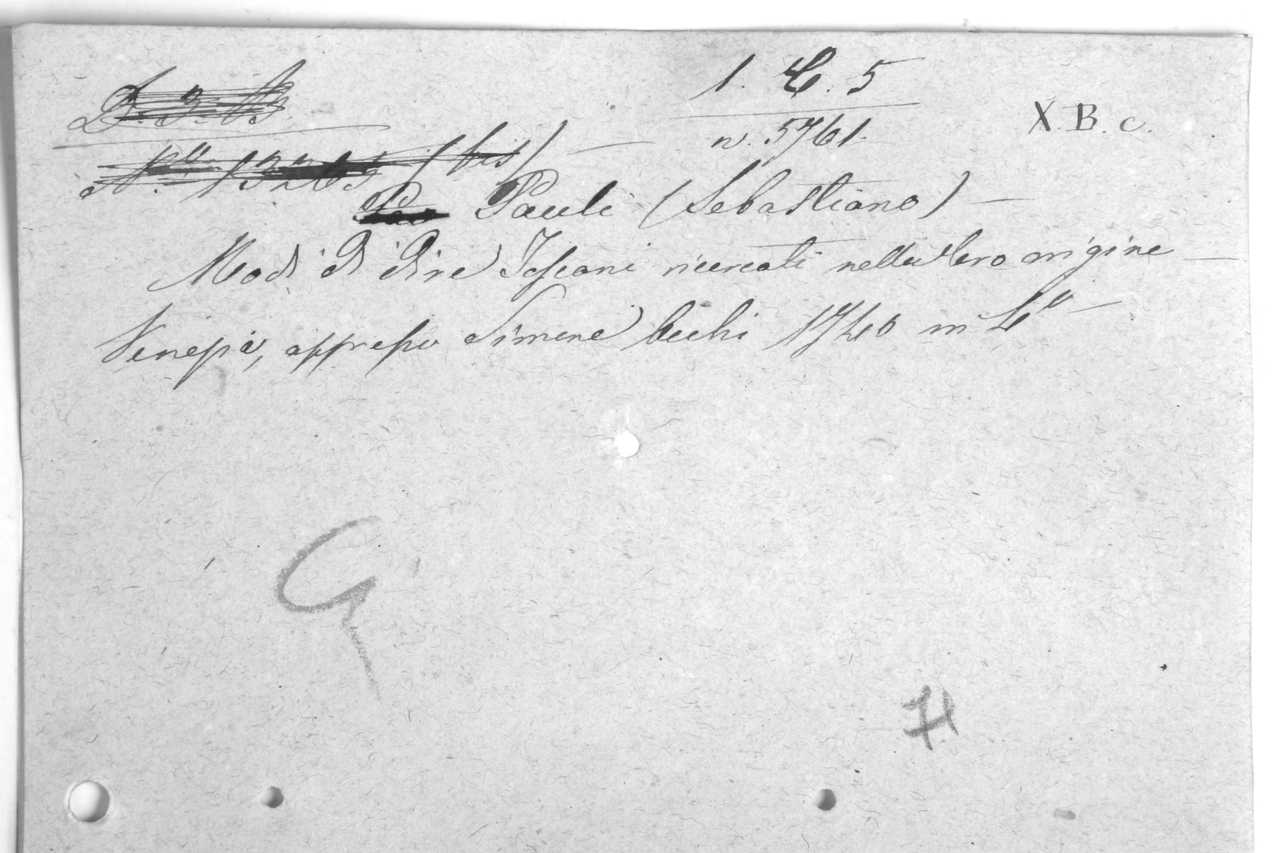 1. C. 5
X. B. c.
n. 5761.
(bis)
Pauli (Sebastiano) —
Modi di dire Toscani ricercati nella loro origine —
Venezia, appresso Simone Occhi 1740 in 4° —
G
H